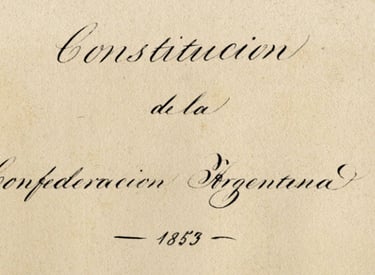 Constitucion
de la
Confederacion Argentina
— 1853 —